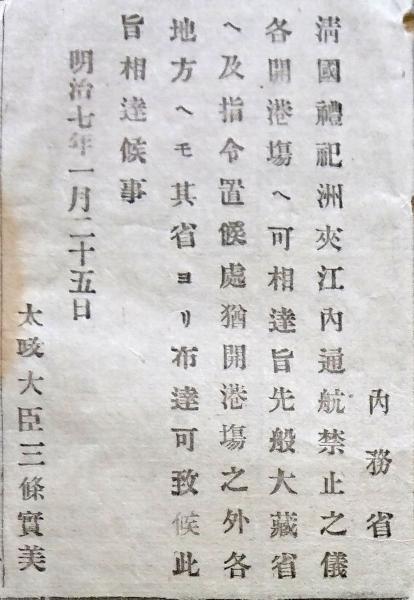 內務省
淸國禮祀洲夾江內通航禁止之儀
各開港塲ヘ可相達旨先般大藏省
ヘ及指令置候處猶開港塲之外各
地方ヘモ其省ヨリ布達可致候此
旨相達候事
明治七年一月二十五日
太政大臣三條實美